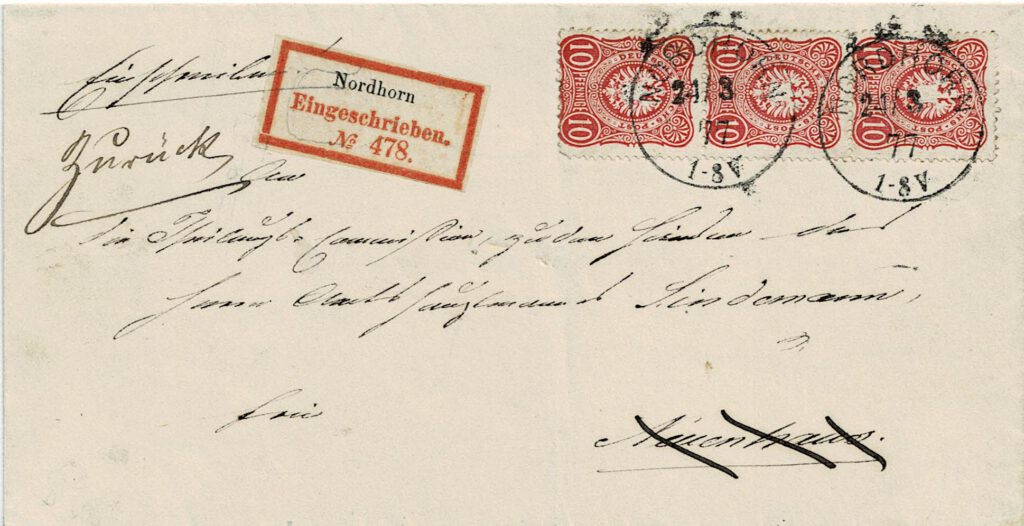 Einschreiben
Zurück
Nordhorn
Eingeschrieben.
№ 478.
10 DEUTSCHE REICHS-POST 10 PFENNIGE
10 DEUTSCHE REICHS-POST 10 PFENNIGE
10 DEUTSCHE REICHS-POST 10 PFENNIGE
NORDHORN
24 3
77
1-8V
NORDHORN
24 3
77
1-8V
An
die Theilungs-Commission, zu den Händen des
Herrn Amtshauptmanns Lindemann,
frei
Neuenhaus.